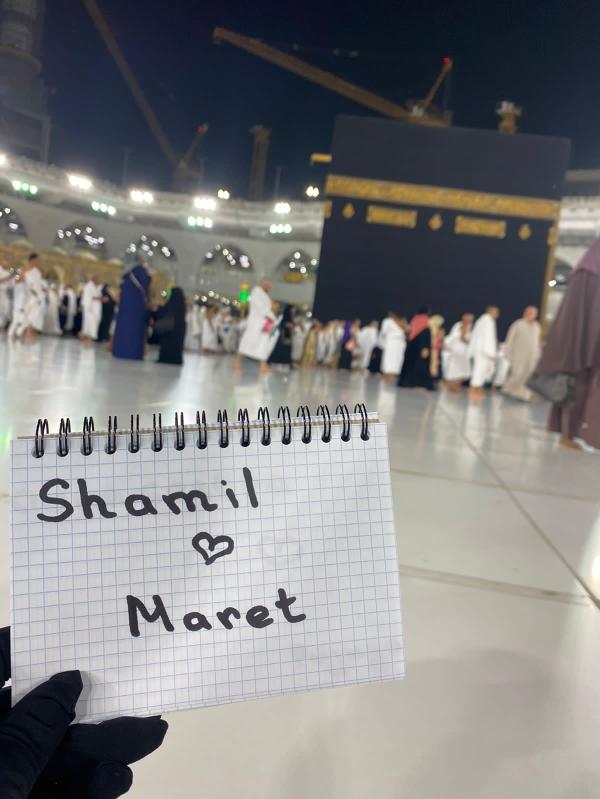 Shamil
♡
Maret